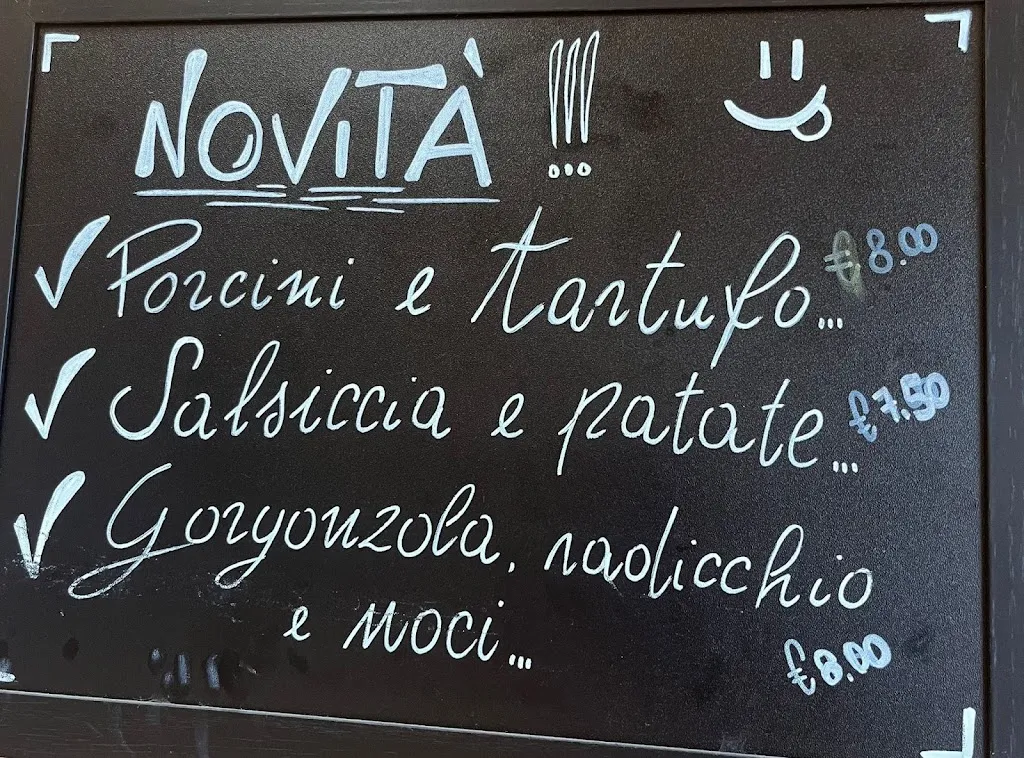 NOVITÀ !!!
Porcini e tartufo... €8.00
Salsiccia e patate... €7.50
Gorgonzola, radicchio
e noci...
€8.00